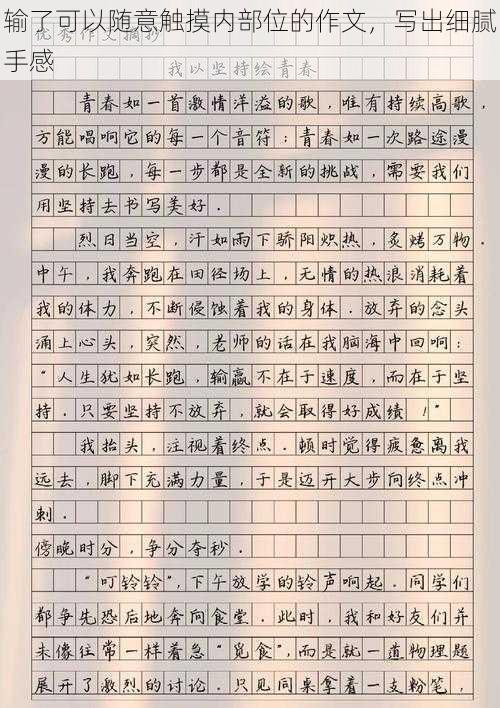 输了可以随意触摸内部位的作文，写出细腻手感
优秀作文摘抄
我以坚持绘青春
青春如一首激情洋溢的歌，唯有持续高歌，
方能唱响它的每一个音符；青春如一次路途漫
漫的长跑，每一步都是全新的挑战，需要我们
用坚持去书写美好．
烈日当空，汗如雨下骄阳炽热，炙烤万物．
中午，我奔跑在田径场上，无情的热浪消耗着
我的体力，不断侵蚀着我的身体．放弃的念头
涌上心头，突然，老师的话在我脑海中回响：
“人生犹如长跑，输赢不在于速度，而在于坚
持．只要坚持不放弃，就会取得好成绩！”
我抬头，注视着终点．顿时觉得疲惫离我
远去，脚下充满力量，于是迈开大步向终点冲
刺．
傍晚时分，争分夺秒．
“叮铃铃”，下午放学的铃声响起．同学们
都争先恐后地奔向食堂．此时，我和好友们并
未像往常一样着急“觅食”，而是就一道物理题
展开了激烈的讨论．只见同桌拿着一支粉笔，